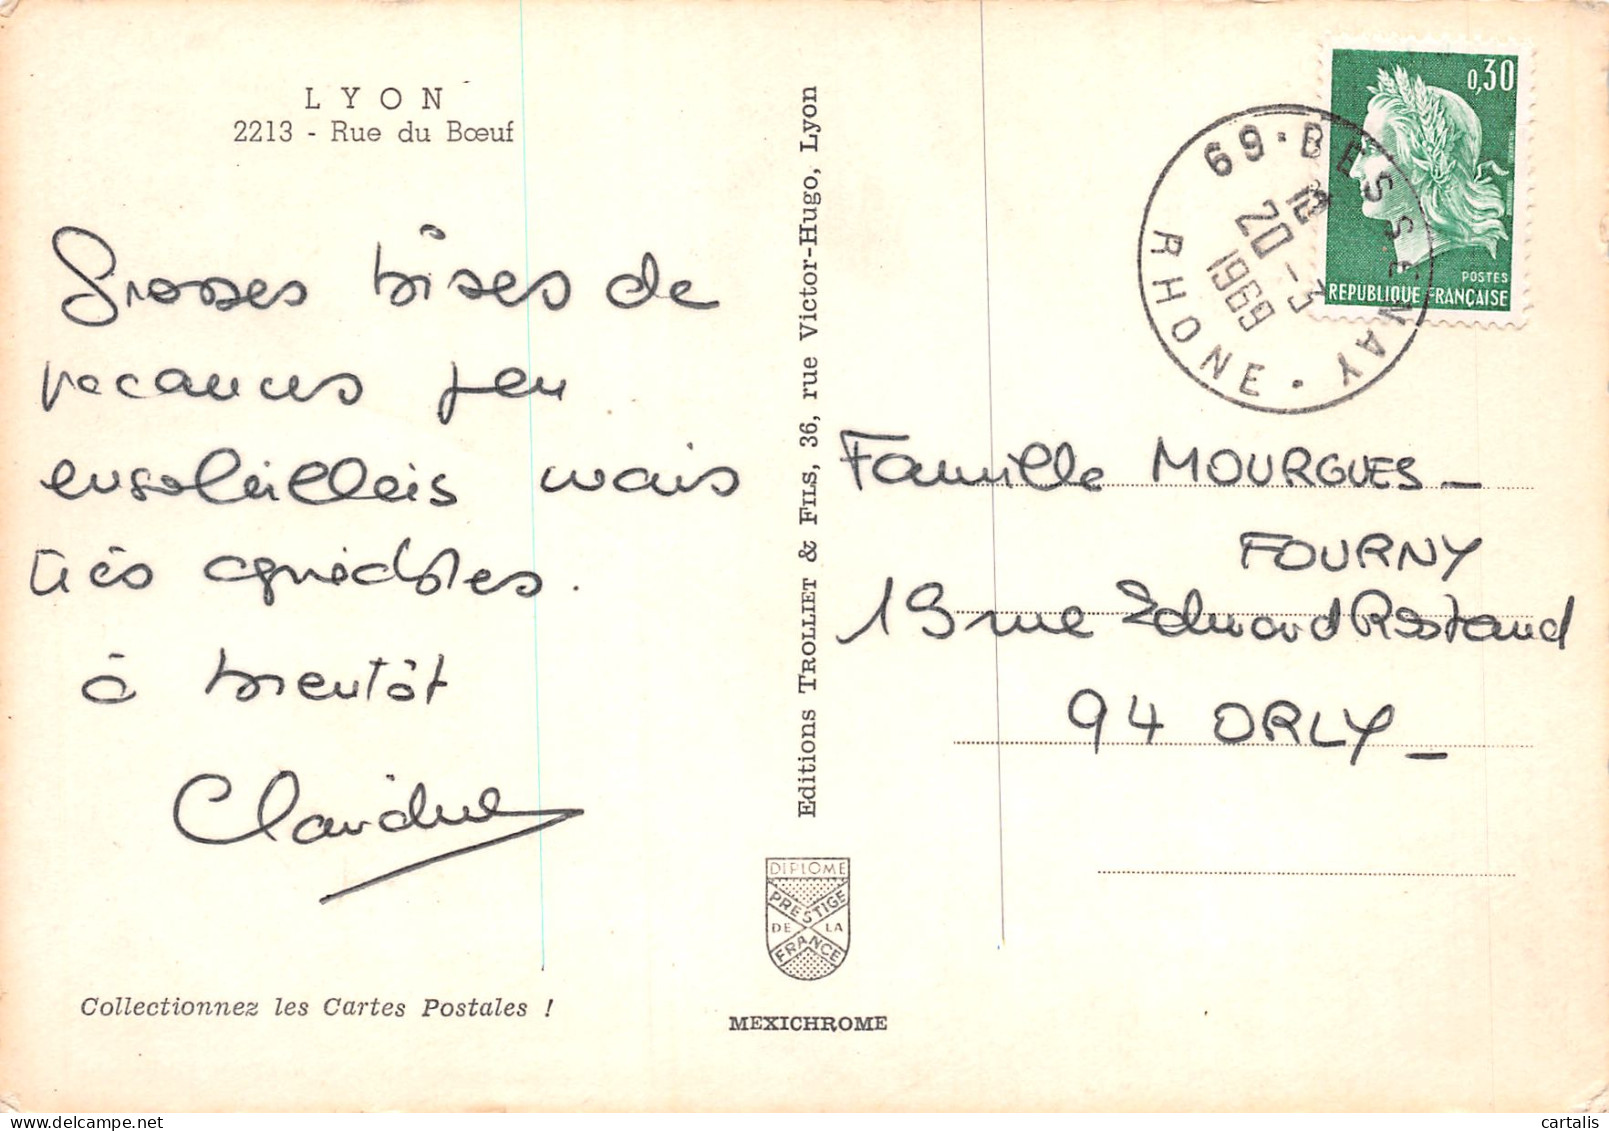 LYON
2213 - Rue du Bœuf
Grosses bises de
vacances peu
ensoleillées mais
très agréables.
à bientôt
Claudine
Collectionnez les Cartes Postales !
Editions TROLLIET & FILS, 36, rue Victor-Hugo, Lyon
DIPLOME
PRESTIGE
DE LA
FRANCE
MEXICHROME
0,30
POSTES
REPUBLIQUE FRANÇAISE
69 · BESSENAY
20 - 3
1969
RHONE
Famille MOURGUES -
FOURNY
19 rue Edward Rostand
94 ORLY -
cartalis
delcampe.net